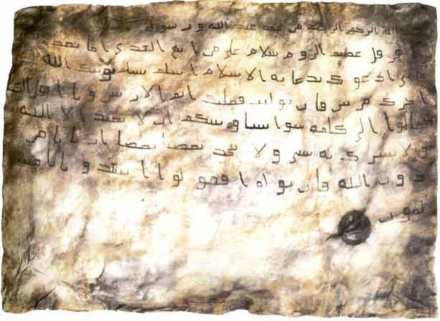 الله الرحمن الرحيم من محمد عبد الله ورسوله
هرقل عظيم الروم سلام على من اتبع الهدى اما بعد
ادعوك بدعايه الاسلام اسلم تسلم يوتك الله
اجرك مرتين فان توليت فعليك اثم
تعالوا الى كلمه سوا بيننا وبينكم ان لا نعبد الا الله
ولا نشرك به ولا يتخذ بعضنا بعضا اربابا من
دون الله فان تولوا فقولوا اشهدوا بانا